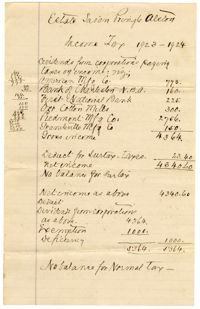 Estate Susan Pringle Alston
Income Tax 1923 - 1924
Dividends from corporations paying
taxes on income:
American Mfg Co. 773.
Bank of Charleston N.B.A. 160.
First National Bank 225
Ogo Cotton Mills 300.
Piedmont Mfg Co. 2756.
Graniteville Mfg Co 150.
Gross income 4364.
Deduct for Surtax. Taxes 23.40
Net income 4340.60
No balance for Surtax
Net income as above 4340.60
Deduct
Dividends from corporations
as above 4364.
Exemption 1000.
Deficiency 1000.
5364. 5364.
No balance for Normal Tax